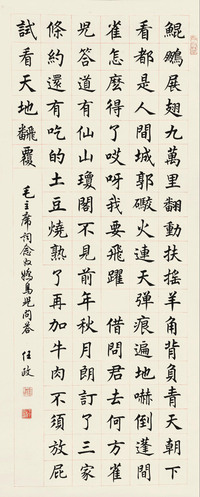 鯤鵬展翅九萬里翻動扶搖羊角背負青天朝下
看都是人間城郭礮火連天彈痕遍地嚇倒蓬間
雀怎麼得了哎呀我要飛躍 借問君去何方雀
兒答道有仙山瓊閣不見前年秋月朗訂了三家
條約還有吃的土豆燒熟了再加牛肉不須放屁
試看天地飜覆
毛主席詞念奴嬌鳥兒問答 任政